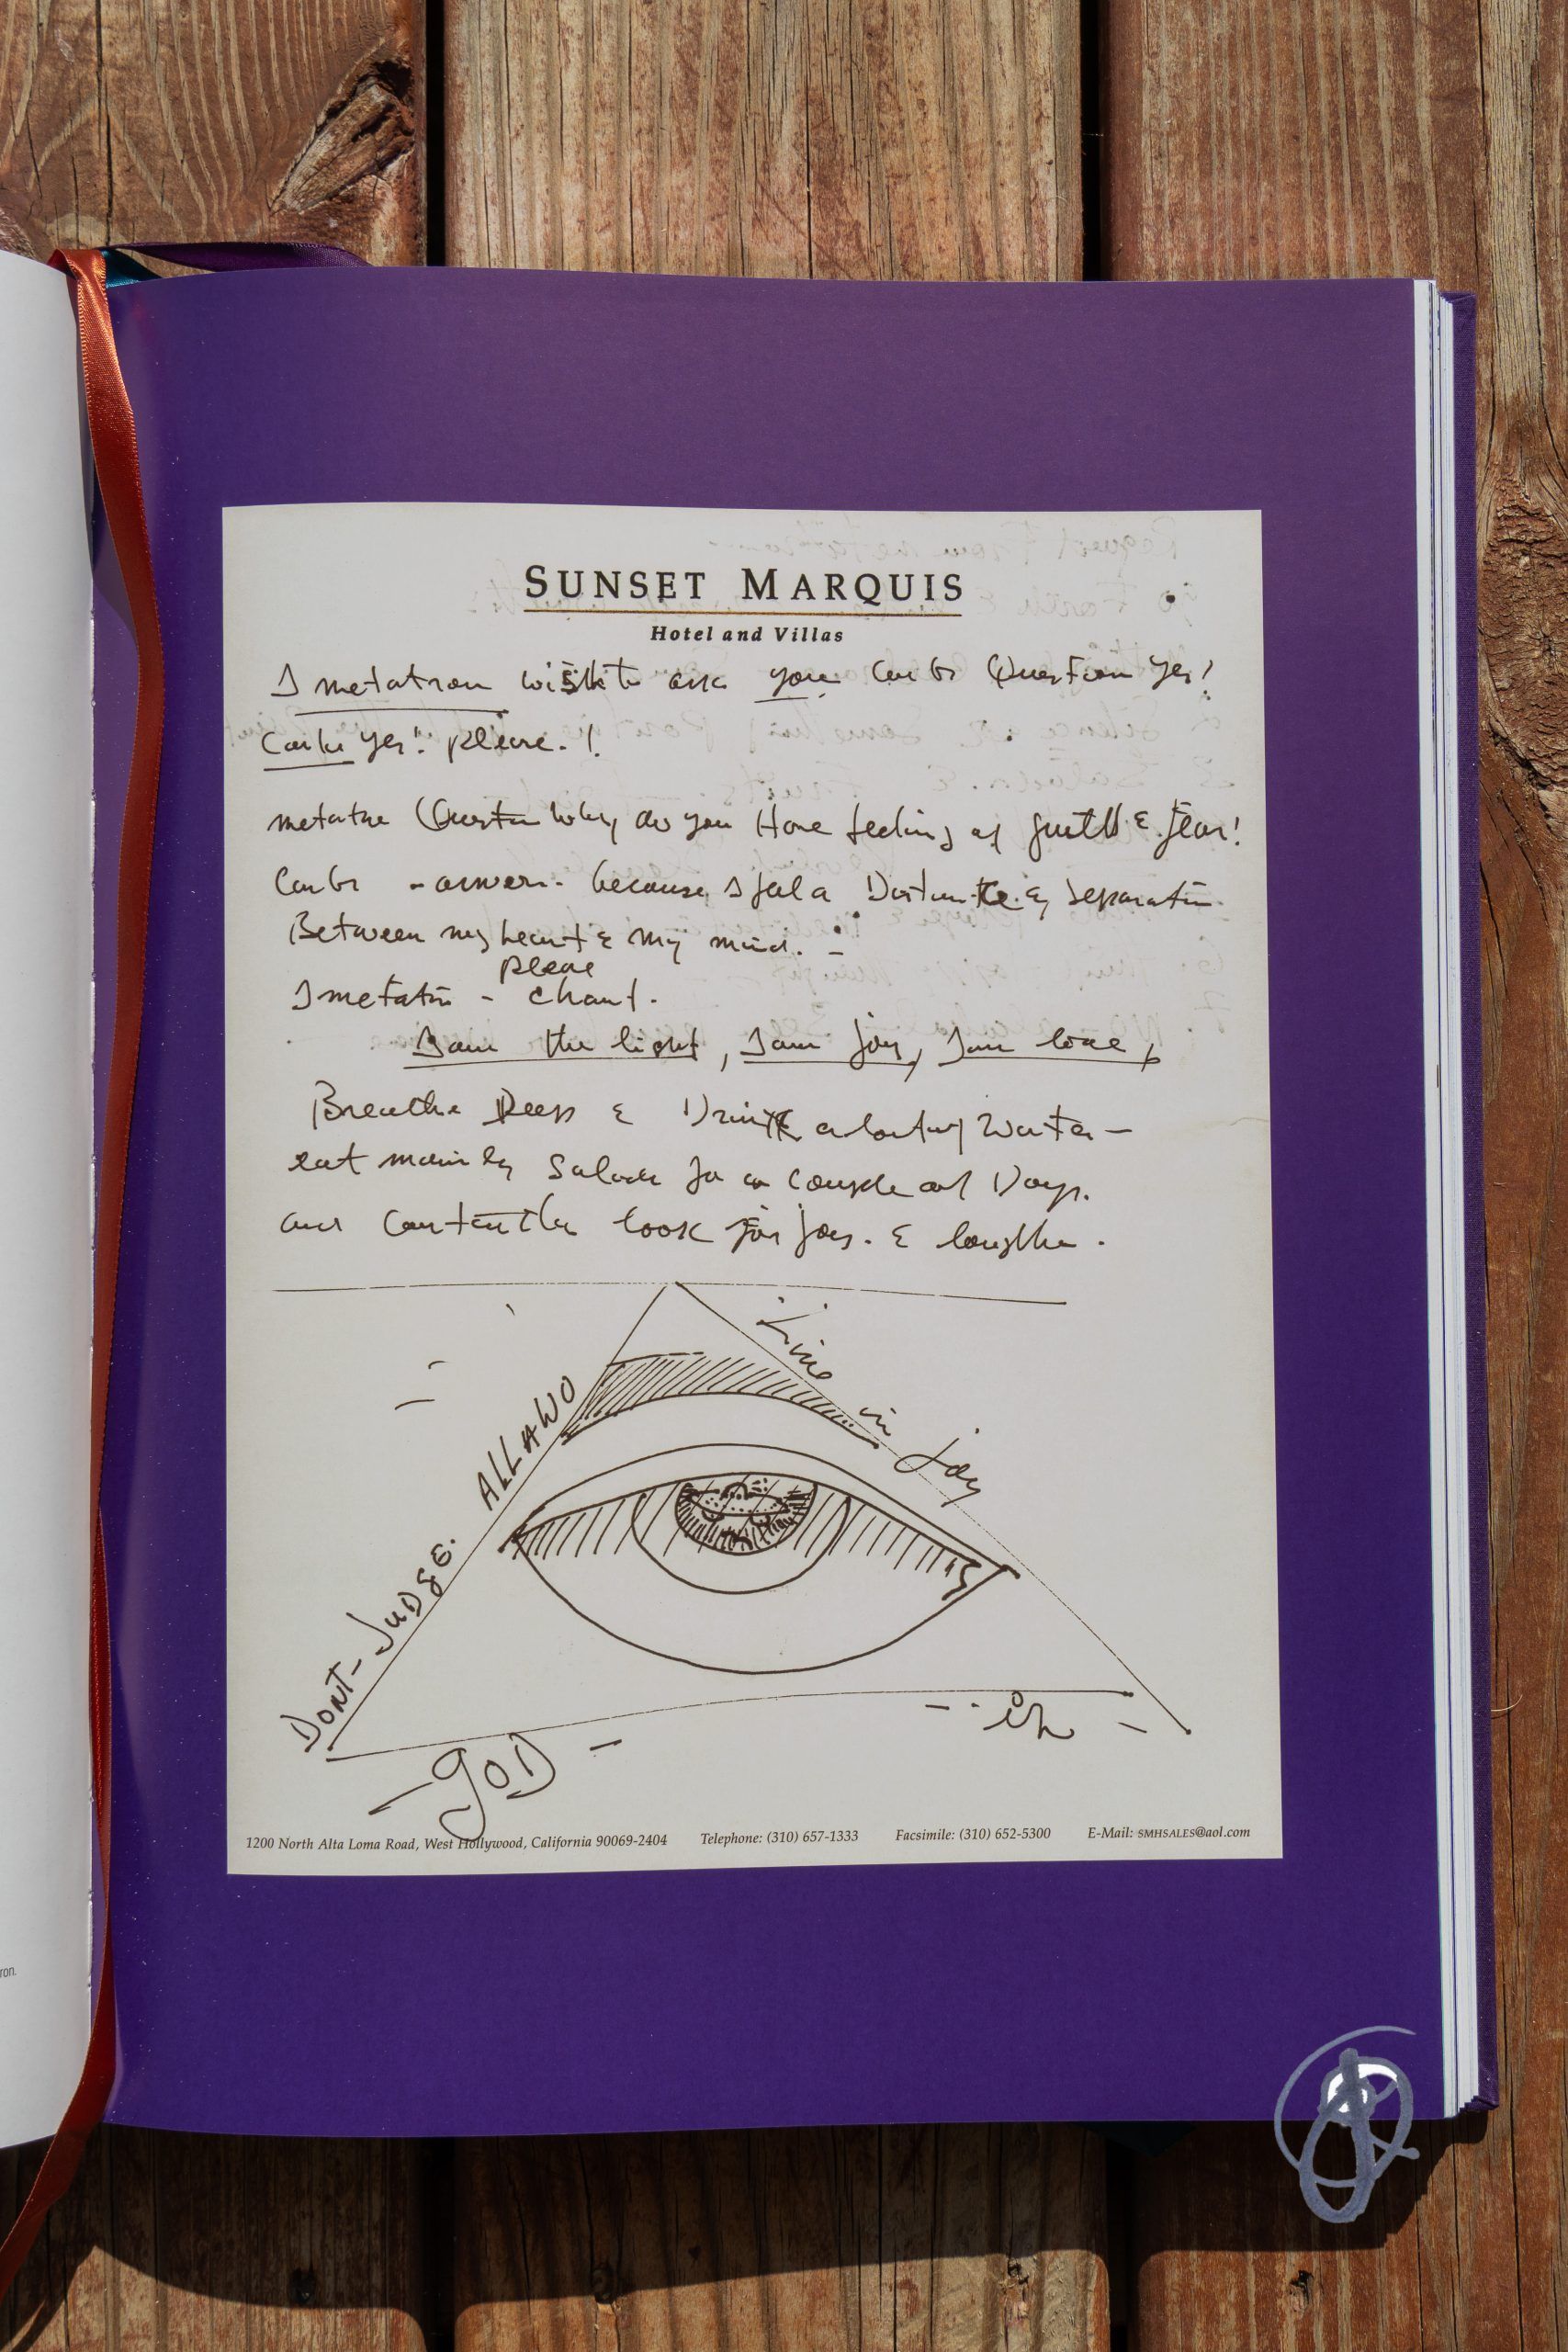 SUNSET MARQUIS
Hotel and Villas
I metatron wish to ask you Carlos Question yes!
Carlos yes! please. !
metatron Question why do you Have feeling of guilt & fear!
Carlos - answer - because I feel a Distance & separation
Between my heart & my mind.
please
I metatron - chant.
I am the light, I am joy, I am love,
Breathe Deep & Drink a lot of Water -
eat mainly Salads for a couple of Days.
and constantly look for joy. &
DONT - JUDGE. ALLAWO
Live in Joy
- GOD -
1200 North Alta Loma Road, West Hollywood, California 90069-2404 Telephone: (310) 657-1333 Facsimile: (310) 652-5300 E-Mail: SMHSALES@aol.com
ron.